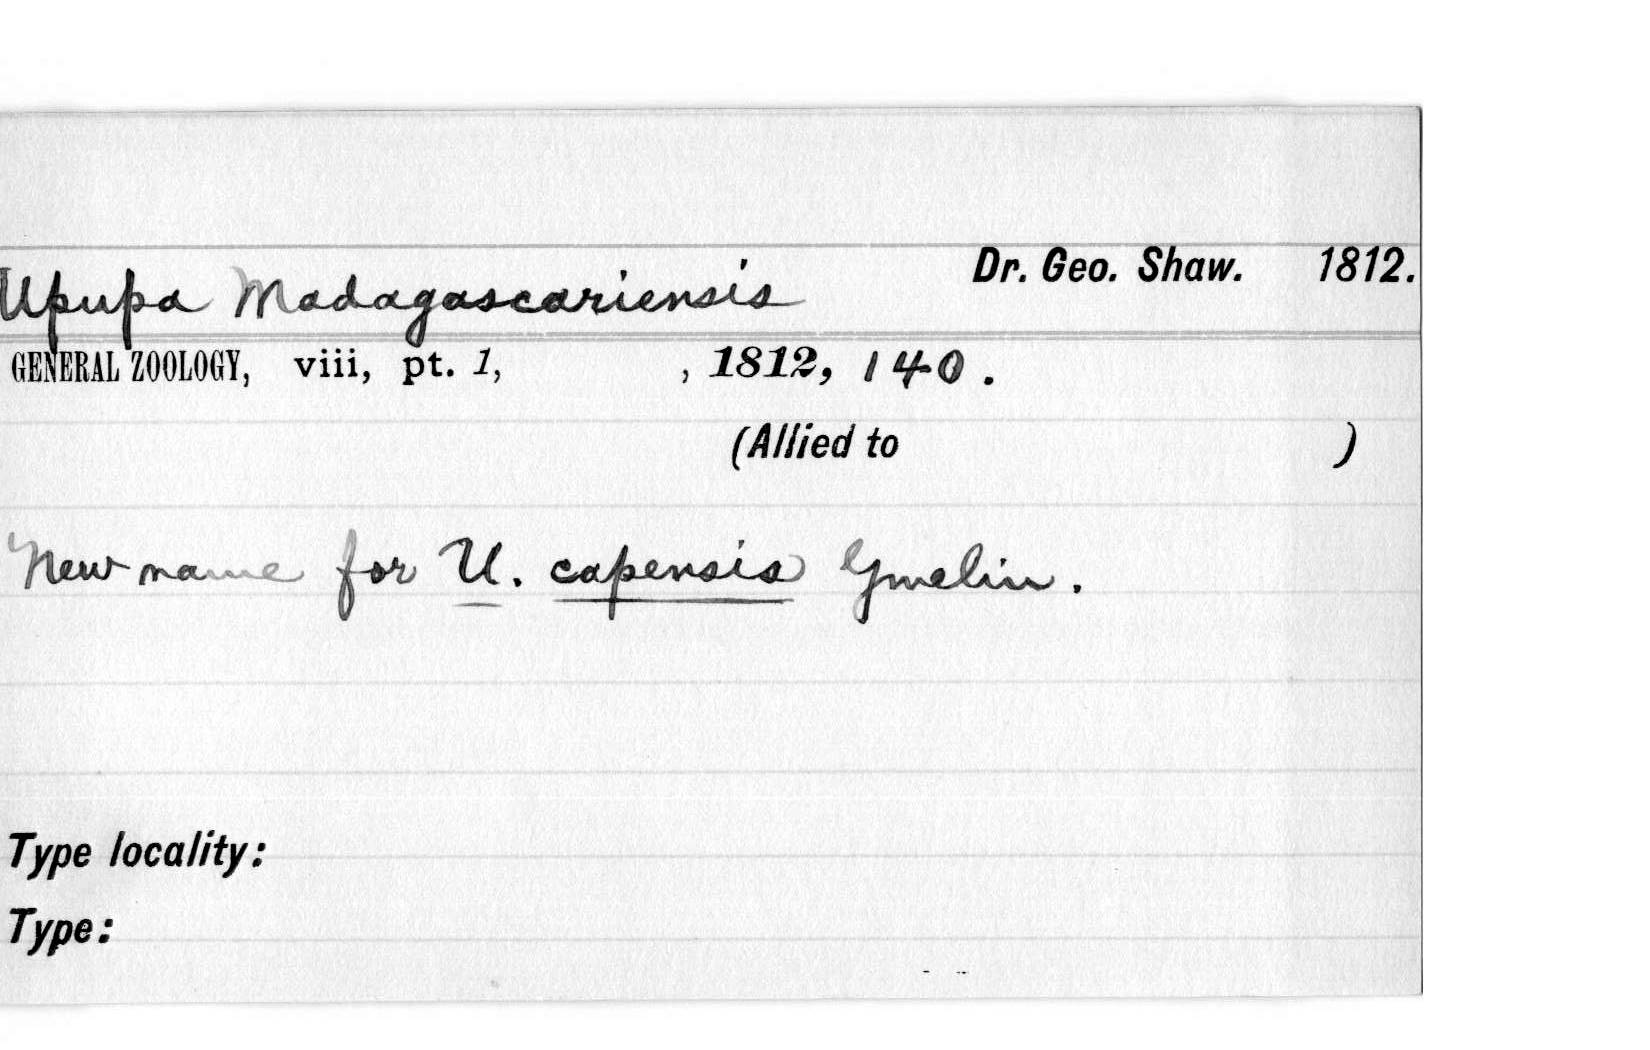 Upupa Madagascariensis Dr. Geo. Shaw. 1812.
GENERAL ZOOLOGY, viii, pt. 1, , 1812, 140.
(Allied to )
New name for U. capensis Gmelin.
Type locality:
Type: